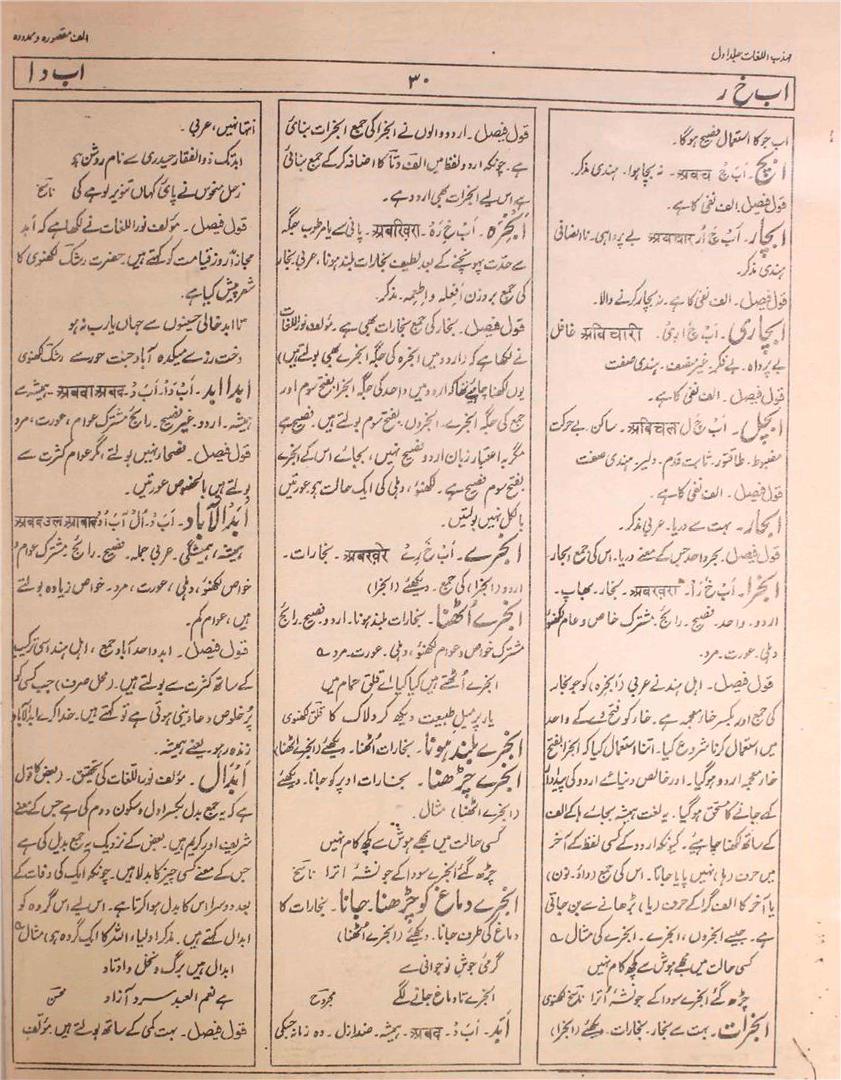 مہذب اللغات جلد اول
الف مقصورہ و ممدودہ
اب خ ر
۳۰
اب د ا
اب جو کا استعمال فصیح ہوگا۔
اَبچ۔ اَب چ अबच ۔ نہ بچا ہوا۔ ہندی مذکر۔
قول فیصل۔ الف نفی کا ہے۔
اَبچار۔ اَب چ ار अबचार بے پرواہی۔ ناانصافی
ہندی مذکر۔
قول فیصل۔ الف نفی کا ہے۔ نہ بچار کرنے والا۔
اَبچاری۔ اَب چ ا ری۔ अविचारी غافل
بے پرواہ۔ بے فکر۔ غیر منصف۔ ہندی صفت
قول فیصل۔ الف نفی کا ہے۔
اَبچل۔ اَب چ ل अविचल۔ ساکن۔ بے حرکت
مضبوط۔ طاقتور۔ ثابت قدم۔ دلیر۔ ہندی صفت
قول فیصل۔ الف نفی کا ہے۔
ابحار۔ بہت سے دریا۔ عربی مذکر۔
قول فیصل۔ بحر واحد جس کے معنے دریا۔ اس کی جمع ابحار۔
ابخرا۔ اَب خ رَا۔ अबखरा۔ بخار۔ بھاپ۔
اردو۔ واحد۔ فصیح۔ رائج۔ مشترک خاص و عام لکھنؤ
دہلی۔ عورت۔ مرد۔
قول فیصل۔ اہل ہند نے عربی (ابخرہ) کو جو بخار
کی جمع اور بکسر خار معجمہ ہے۔ خار کو فتح دے کے واحد
میں استعمال کرنا شروع کیا۔ اتنا استعمال کیا کہ ابخرا بفتح
خار معجمہ اردو ہو گیا۔ اور خالص دنیائے اردو کی پیداوار
کہے جانے کا مستحق ہو گیا۔ یہ لغت ہمیشہ بجائے ہ کے الف
کے ساتھ لکھنا چاہیے۔ کیونکہ اردو کے کسی لفظ کے آخر
میں حرف (ہ) نہیں پایا جاتا۔ اس کی جمع (واؤ۔ نون)
یا آخر کا الف گرا کے حرف (یا) بڑھانے سے بن جاتی
ہے۔ جیسے ابخروں، ابخرے۔ ابخرے کی مثال ؎
کسی حالت میں مجھے ہوش سے کچھ کام نہیں
چڑھ گئے ابخرے سودا کے جو نشہ اترا ناسخ لکھنوی
ابخرات۔ بہت سے بخار۔ بخارات۔ دیکھئے (ابخرا)
قول فیصل۔ اردو والوں نے ابخرا کی جمع ابخرات بنائی
ہے۔ چونکہ اردو لفظ میں الف و تا کا اضافہ کر کے جمع بنائی
ہے اس لیے ابخرات بھی اردو ہے۔
اَبخرہ۔ اَب خِ رَہ۔ अबखिरा۔ پانی سے یا مرطوب جگہ
سے حدت پہونچنے کے بعد لطیف بخارات بلند ہونا، عربی بخار
کی جمع بروزن افعلہ و اطعمہ۔ مذکر۔
قول فیصل۔ بخار کی جمع بخارات بھی ہے۔ مؤلف نوراللغات
نے لکھا ہے کہ (اردو میں ابخرہ کی جگہ ابخرے بھی بولتے ہیں)
یوں لکھنا چاہیئے تھا کہ اردو میں واحد کی جگہ ابخرا بفتح سوم اور
جمع کی جگہ ابخرے۔ ابخروں۔ بفتح سوم بولتے ہیں۔ فصیح ہے
مگر بہ اعتبار زبان اردو فصیح نہیں، بجائے اس کے ابخرے
بفتح سوم فصیح ہے۔ لکھنؤ، دہلی کی ایک حالت ہے عورتیں
بالکل نہیں بولتیں۔
ابخرے۔ اَب خَ رے अबखरे۔ بخارات۔
اردو (ابخرا) کی جمع۔ دیکھئے (ابخرا)
ابخرے اُٹھنا۔ بخارات بلند ہونا۔ اردو۔ فصیح۔ رائج
مشترک خواص و عوام لکھنؤ، دہلی۔ عورت۔ مرد ؎
ابخرے اُٹھتے ہیں کیا کیا اے قلق حمام میں
یار پر میل طبیعت دیکھ کر دلاک کا قلق لکھنوی
ابخرے بلند ہونا۔ بخارات اُٹھنا۔ دیکھئے (ابخرے اٹھنا)
ابخرے چڑھنا۔ بخارات اوپر کو جانا۔ دیکھئے
(ابخرے اٹھنا) مثال۔
کسی حالت میں مجھے ہوش سے کچھ کام نہیں
چڑھ گئے ابخرے سودا کے جو نشہ اترا ناسخ
ابخرے دماغ کو چڑھنا۔ جانا۔ بخارات کا
دماغ کی طرف جانا۔ دیکھئے (ابخرے اُٹھنا)
گرمی جوش نوجوانی سے
ابخرے تا دماغ جانے لگے مجروح
اَبَد۔ اَبَ د۔ अबद۔ ہمیشہ۔ ضد ازل۔ وہ زمانہ جسکی
انتہا نہیں، عربی۔
ابد تک ذوالفقار حیدری سے نام روشن ہو
زحل منحوس نے پائی کہاں تنویر لوہے کی ناسخ
قول فیصل۔ مؤلف نوراللغات نے لکھا ہے کہ اَبد
مجازاً روز قیامت کو کہتے ہیں۔ حضرت رشک لکھنوی کا
شعر پیش کیا ہے۔
تا ابد خالی حسینوں سے جہاں یارب نہ ہو
دخت رز سے میکدہ آباد جنت حور سے رشک لکھنوی
ابدا ابد۔ اَب دَ۔ اَبَ دْ۔ अबदा अबद۔ ہمیشہ سے
ہمیشہ۔ اردو۔ غیر فصیح۔ رائج مشترک عوام، عورت، مرد
قول فیصل۔ فصحا نہیں بولتے، مگر عوام کثرت سے
بولتے ہیں بالخصوص عورتیں۔
اَبدُ الآباد۔ اَبَ دُ۔ اُلْ آبَ ا د अबदउल आबाद
ہمیشہ، ہمیشگی۔ عربی جملہ۔ فصیح۔ رائج۔ مشترک عوام و
خواص لکھنؤ، دہلی، عورت، مرد۔ خواص زیادہ بولتے
ہیں، عوام کم۔
قول فیصل۔ ابد واحد آباد جمع، اہل ہند اسی ترکیب
کے ساتھ کثرت سے بولتے ہیں۔ (محل صرف) جب کسی کو
پر خلوص دعا دینی ہوتی ہے تو کہتے ہیں۔ خدا کرے ابدالآباد
زندہ رہو یعنے ہمیشہ۔
اَبدال۔ مؤلف نوراللغات کی تحقیق۔ (بعض کا قول
ہے کہ یہ جمع بدل بکسر اول و سکون دوم کی ہے جس کے معنے
شریف اور کریم ہیں۔ بعض کے نزدیک یہ جمع بدل کی ہے
جس کے معنے کسی چیز کا بدلا ہیں۔ چونکہ ایک کی وفات کے
بعد دوسرا اس کا بدل ہوا کرتا ہے۔ اس لیے اس گروہ کو
ابدال کہتے ہیں۔ مذکر) اولیاء اللہ کا ایک گروہ ہے۔ (مثال) ؎
ابدال ہیں برگ و نخل و اوتاد
ہے نعم العبد سرو آزاد محسن
قول فیصل۔ بہت کمی کے ساتھ بولتے ہیں۔ مؤلف